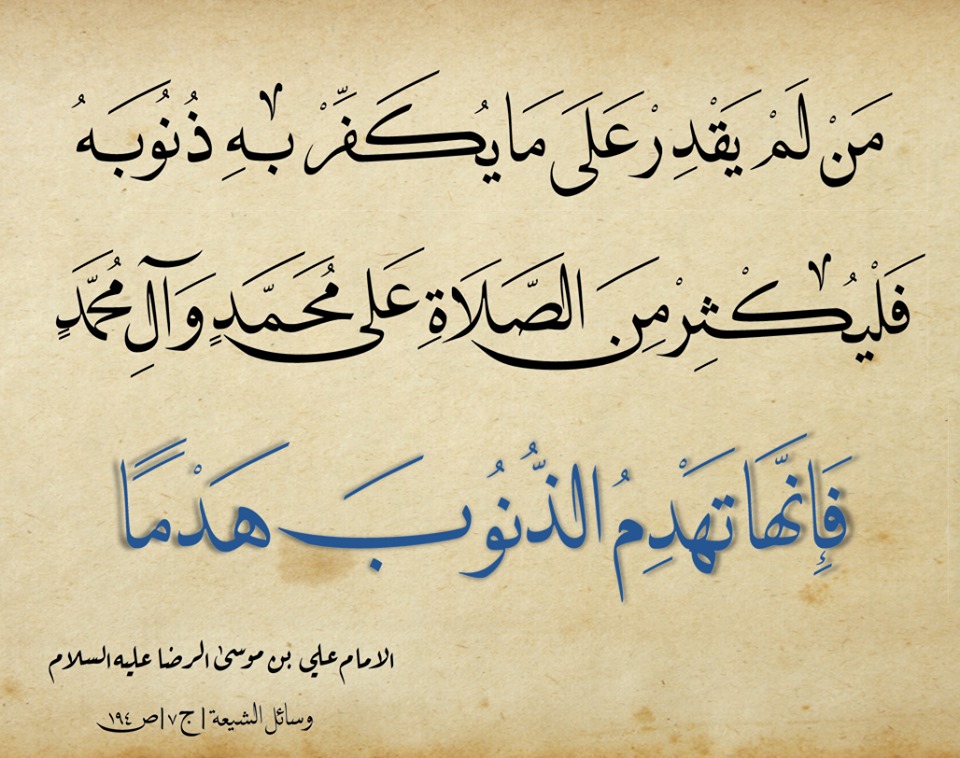 مَنْ لَمْ يَقْدِرْ عَلَى مَا يُكَفِّرْ بِهِ ذُنُوبَهُ
فَلْيُكْثِرْ مِنَ الصَّلَاةِ عَلَى مُحَمَّدٍ وَآلِ مُحَمَّدٍ
فَإِنَّهَا تَهْدِمُ الذُّنُوبَ هَدْمًا
الامام علي بن موسىٰ الرضا عليه السلام
وسائل الشيعة | ج٧ | ص ١٩٤